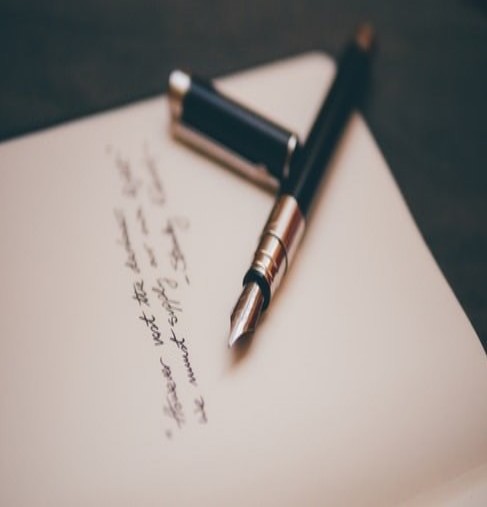 "However vast the darkness,
we must supply our own light."
- Stanley